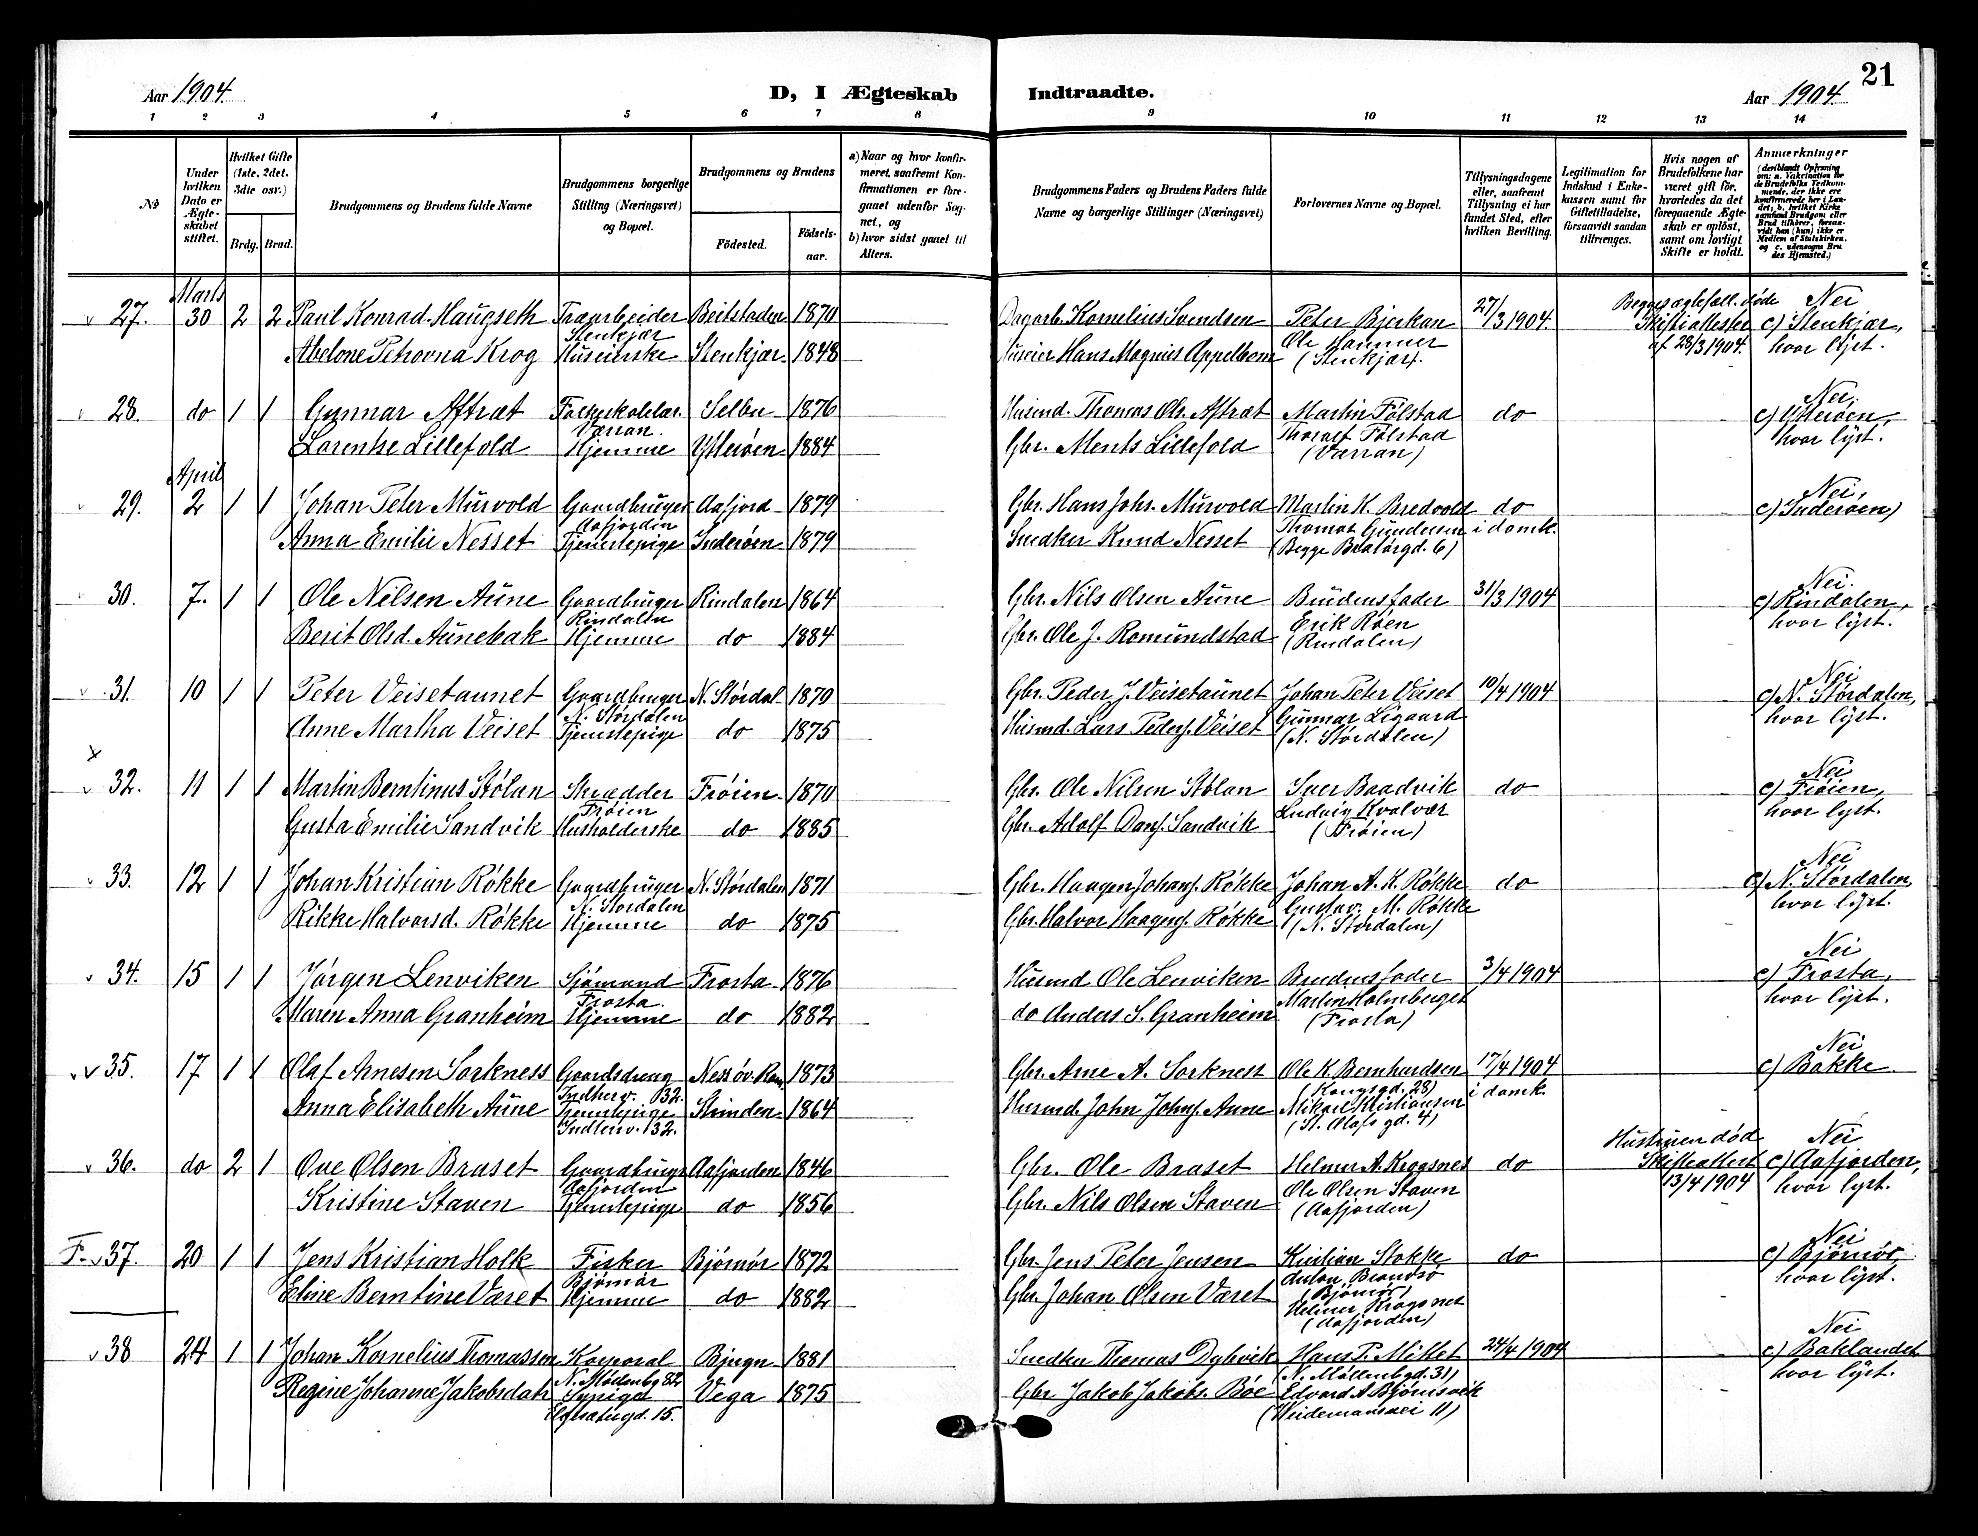 21
Aar 1904. D, I Ægteskab Indtraadte. Aar 1904.
1 2 3 4 5 6 7 8 9 10 11 12 13 14
No
Under hvilken Dato er Ægteskabet stiftet.
Hvilket Gifte (1ste, 2det, 3die osv.)
Brdg. Brud.
Brudgommens og Brudens fulde Navne
Brudgommens borgerlige Stilling (Næringsvei) og Bopæl.
Brudgommens og Brudens
Fødested. Fødselsaar.
a) Naar og hvor konfirmeret, saafremt Konfirmationen er foregaaet udenfor Sognet, og
b) hvor sidst gaaet til Alters.
Brudgommens Faders og Brudens Faders fulde Navne og borgerlige Stillinger (Næringsvei)
Forlovernes Navne og Bopæl.
Tillysningsdagene eller, saafremt Tillysning ei har fundet Sted, efter hvilken Bevilling.
Legitimation for Indskud i Enkekassen samt for Giftetilladelse, forsaavidt saadan tiltrænges.
Hvis nogen af Brudefolkene har været gift før, hvorledes da det foregaaende Ægteskab er opløst, samt om lovligt Skifte er holdt.
Anmærkninger
Marts
27. 30 2 2 Paul Konrad Haugseth Træarbeider Beitstaden 1870 Dagarb. Kornelius Svendsen Peter Bjerkan 27/3 1904. Begges ægtefæll. døde Skifteattester af 28/3 1904. Nei c) Stenkjær, hvor lyst.
Stenkjær
Abelone Petrovna Krog Huseierske Stenkjær 1848 Huseier Hans Magnus Appelbom Ole Hammer (Stenkjær).
28. do 1 1 Gunnar Aftræt Folkeskolelær. Selbu 1876 Husmd. Thomas Ols. Aftræt Martin Følstad do Nei, c) Ytterøen, hvor lyst.
Værran.
Lorentse Lillefold Hjemme Ytterøen 1884 Gbr. Ments Lillefold Thoralf Følstad (Værran)
April
29. 2 1 1 Johan Peter Murvold Gaardbruger Aafjord 1879 Gbr. Hans Johs. Murvold Martin K. Bredvold do i domk. Nei c) Inderøen
Aafjorden
Anna Emilie Nesset Tjenestepige Inderøen 1879 Snedker Knud Nesset Thomas Gundersen (Begge Bratørgd. 6)
30. 7. 1 1 Ole Nilsen Aune Gaardbruger Rindalen 1864 Gbr. Nils Olsen Aune Brudens fader 31/3 1904 Nei. c) Rindalen, hvor lyst.
Rindalen
Berit Olsd. Aunebak Hjemme do 1884 Gbr. Ole J. Romundstad Erik Røen (Rindalen)
31. 10 1 1 Peter Veisetaunet Gaardbruger N. Størdal 1870 Gbr. Peder J. Veisetaunet Johan Peter Veiset 10/4 1904 Nei c) N. Størdalen, hvor lyst.
N. Størdalen
Anne Martha Veiset Tjenestepige do 1875 Husmd. Lars Peders. Veiset Gunnar Ligaard (N. Størdalen)
x
32. 11 1 1 Martin Berntinus Stølan Skrædder Frøien 1870 Gbr. Ole Nilsen Stølan Iver Baadvik do Nei c) Frøien, hvor lyst.
Frøien
Gusta Emilie Sandvik Husholderske do 1885 Gbr. Adolf Dans. Sandvik Ludvig Kvalvær (Frøien)
33. 12 1 1 Johan Kristian Røkke Gaardbruger N. Størdalen 1871 Gbr. Haagen Johans. Røkke Johan A. K. Røkke do Nei c) N. Størdalen, hvor lyst.
N. Størdalen
Rikke Halvorsd. Røkke Hjemme do 1875 Gbr. Halvor Haagns. Røkke Gustav M. Røkke (N. Størdalen)
34. 15 1 1 Jørgen Lenviken Sjømand Frosta 1876 Husmd Ole Lenviken Brudens fader 3/4 1904 Nei c) Frosta, hvor lyst.
Frosta.
Maren Anna Granheim Hjemme do 1882 do Anders S. Granheim Martin Holmberget (Frosta)
35. 17 1 1 Olaf Arnesen Sorkness Gaardsdreng Nes øv. Rom. 1873 Gbr. Arne A. Sorkness Ole K. Bernhardsen 17/4 1904 i domk. Nei c) Bakke
Indherv. 132. (Kongsgd. 28)
Anna Elisabeth Aune Tjenestepige Strinden 1864 Husmd. John Johns. Aune Mikael Kristiansen
Indherv. 132. (St. Olafs gd. 4)
36. do 2 1 Ove Olsen Braset Gaardbruger Aafjorden 1846 Gbr. Ole Braset Helmer A. Krogsnes do Hustruen død Skifteattest 13/4 1904 Nei c) Aafjorden, hvor lyst.
Aafjorden
Kristine Staven Tjenestepige do 1856 Gbr. Nils Olsen Staven Ole Olsen Staven (Aafjorden)
F. 37. 20 1 1 Jens Kristian Holk Fisker Bjørnør 1872 Gbr. Jens Peter Jensen Kristian Stokke do Nei c) Bjørnør, hvor lyst.
Bjørnør Anton Brandsø (Bjørnør)
Eline Berntine Været Hjemme do 1882 Gbr. Johan Olsen Været Helmer Krogsnes (Aafjorden)
38 24 1 1 Johan Kornelius Thomassen Korporal Bjugn 1881 Snedker Thomas Dybvik Hans P. Miklet 24/4 1904 Nei c) Baklandet hvor lyst.
N. Møllenbg 82 (N. Møllenbgd. 31)
Regine Johanne Jakobsdatr Sypige Vega 1875 Gbr Jakob Jakobs. Bøe Edvard A Bjørnsvik
Elgesætergd. 15. (Weidemansvei 11)